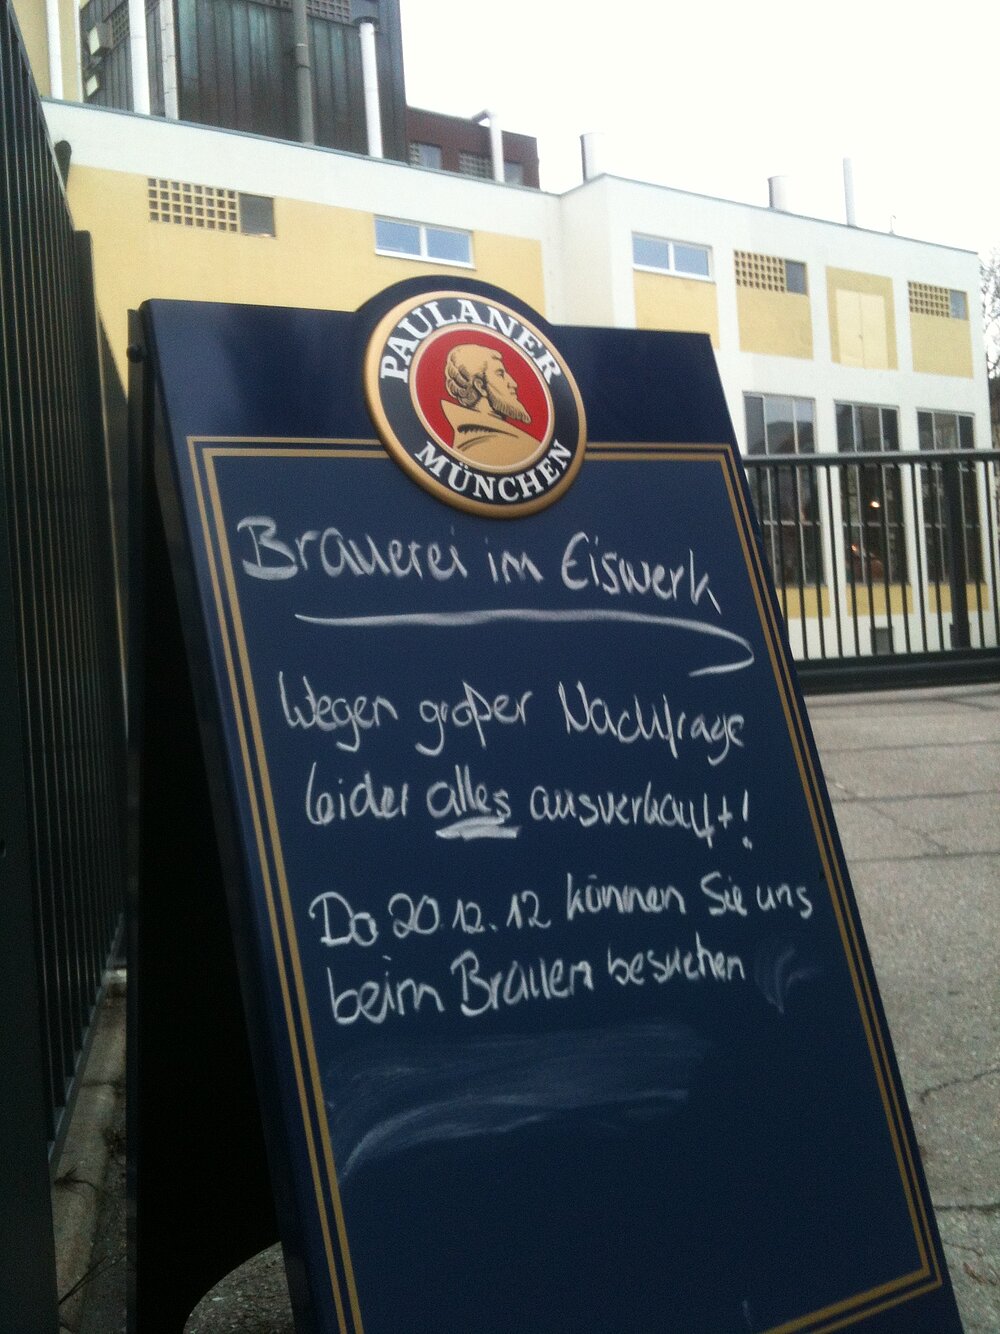 PAULANER
MÜNCHEN
Brauerei im Eiswerk
Wegen großer Nachfrage
leider alles ausverkauft!
Do 20.12.12 können Sie uns
beim Brauen besuchen